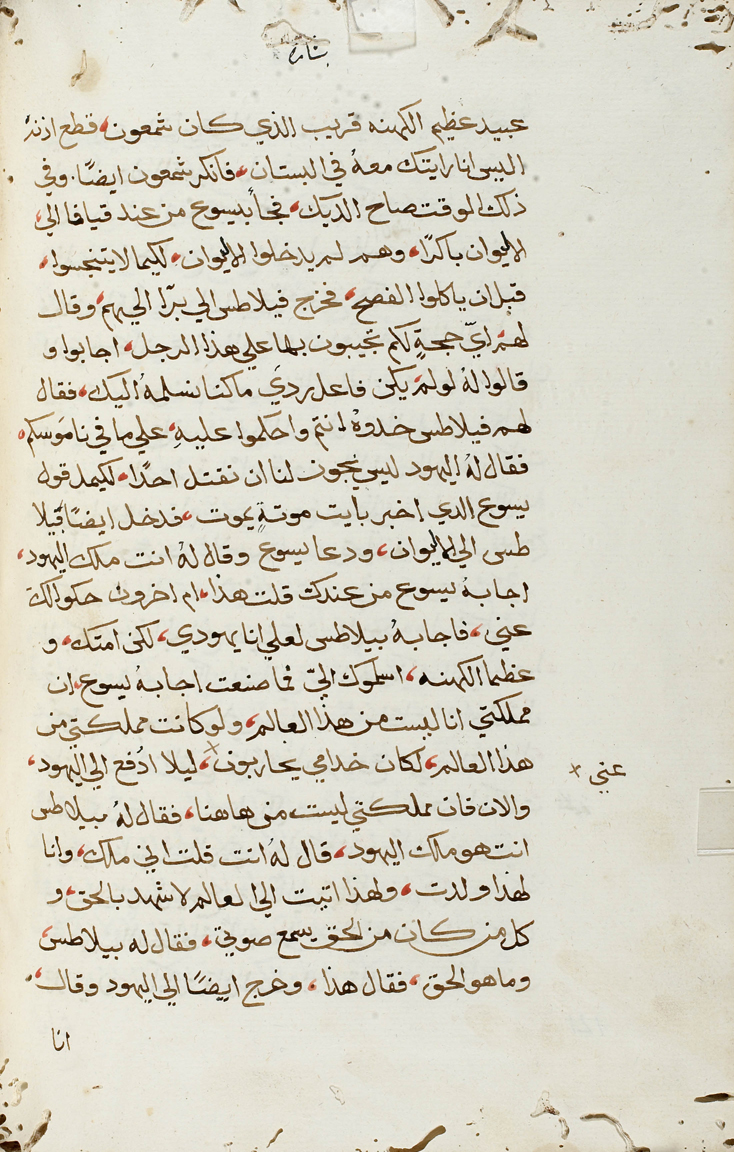 بشاره
عبيد عظيم الكهنه قريب الذي كان شمعون، قطع اذنهُ
اليس انا رايتك معهُ في البستان، فانكر شمعون ايضًا. وفي
ذلك الوقت صاح الديك، فجأ بيسوع من عند قيافا الي،
الايوان باكرًا، وهم لم يدخلوا الايوان، لكيما لا يتنجسوا،
قبل ان ياكلوا الفصح، فخرج فيلاطس الي برّا اليهم، وقال
لهم ايّ حجةٍ لكم تجيبون بها علي هذا الرجل، اجابوا و
قالوا لهُ لولم يكن فاعل ردي ما كنا نسلمهُ اليك، فقال
لهم فيلاطس خدوهُ انتم واحكموا عليهِ، علي ما في ناموسكم،
فقال لهُ اليهود ليس يجوز لنا ان نقتل احدًا، لكيمل قول
يسوع الدي اخبر بايت موتةٍ يموت، فدخل ايضًا فيلا
طس الي الايوان، ودعا يسوع وقال لهُ انت ملك اليهود،
اجابهُ يسوع من عندك قلت هذا، ام اخرون حكوا لك
عني، فاجابهُ بيلاطس لعلي انا يهودي، لكن امتك، و
عظما الكهنه، اسلموك اليّ فما صنعت اجابهُ يسوع، ان
مملكتي انا ليست من هذا العالم، ولو كانت مملكتي من
هذا العالم، لكان خدامي يحاربون، ليلا ادُفع الي اليهود،
عني
والان فان مملكتي ليست من هاهنا، فقال لهُ بيلاطس
انت هو ملك اليهود، قال لهُ انت قلت اني ملك، وانا
لهذا ولدت، ولهذا اتيت الي العالم لاشهد بالحق، و
كل من كان من الحق يسمع صوتي، فقال له بيلاطس
وما هو الحق، فقال هذا، وخرج ايضًا الي اليهود وقال،
انا